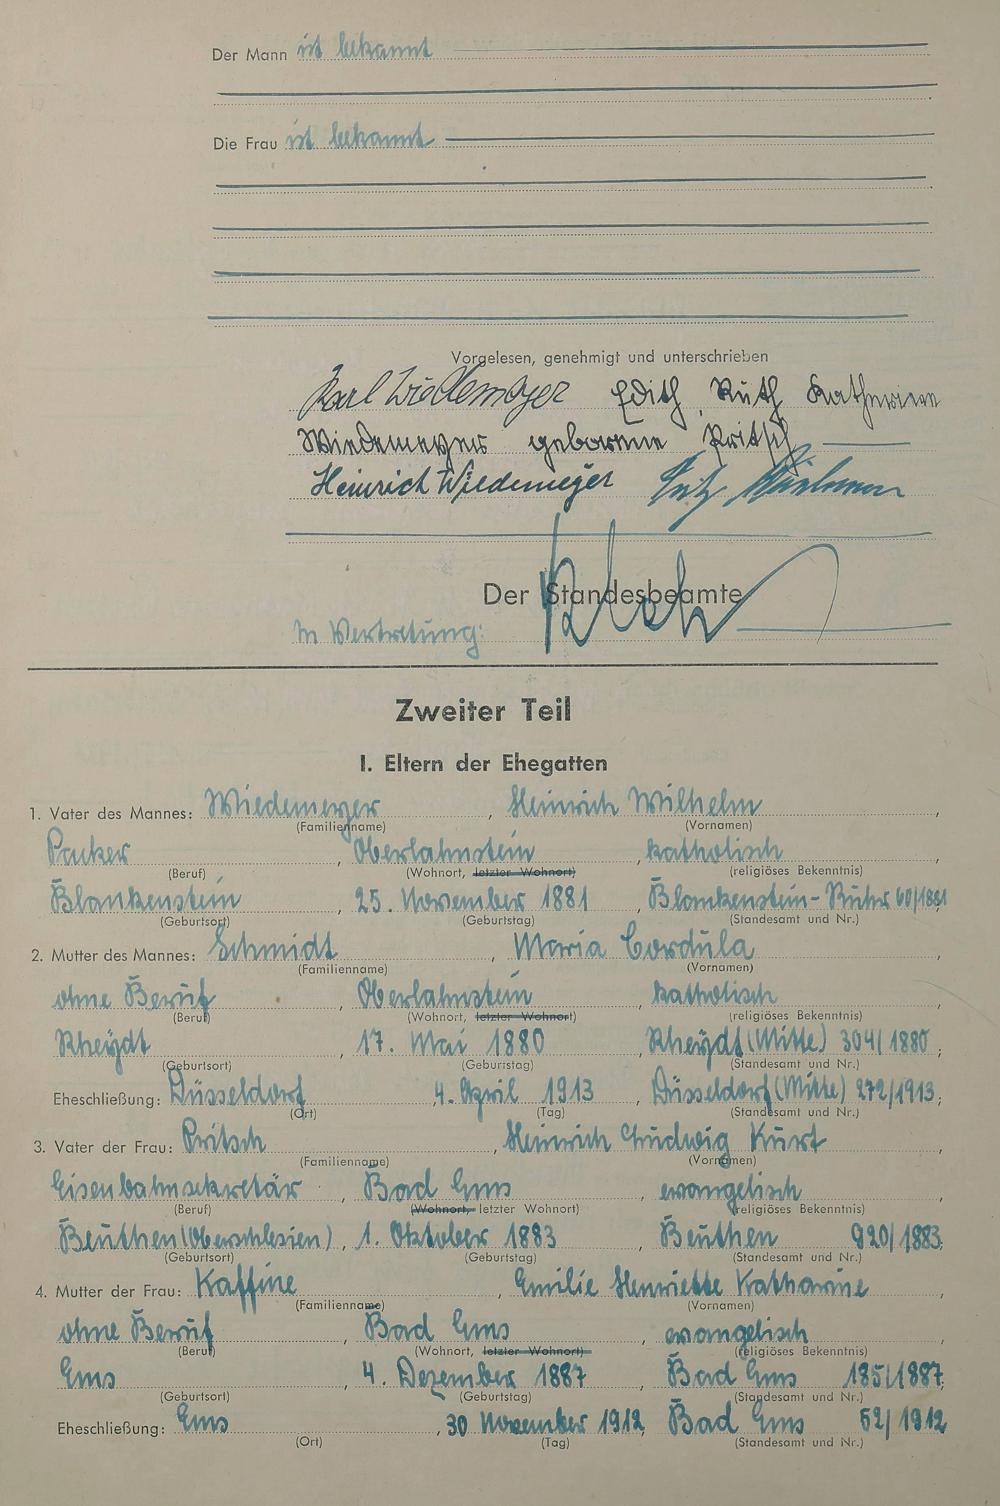 Der Mann ist bekannt
Die Frau ist bekannt
Vorgelesen, genehmigt und unterschrieben
Karl Wiedemeyer Edith Ruth Katharina
Wiedemeyer geborene Pritsch
Heinrich Wiedemeyer Fritz
Der Standesbeamte
In Vertretung:
Zweiter Teil
I. Eltern der Ehegatten
1. Vater des Mannes: Wiedemeyer, Heinrich Wilhelm,
(Familienname) (Vornamen)
Packer, Oberlahnstein, katholisch,
(Beruf) (Wohnort, letzter Wohnort) (religiöses Bekenntnis)
Blankenstein, 25. November 1881, Blankenstein-Ruhr 60/1881
(Geburtsort) (Geburtstag) (Standesamt und Nr.)
2. Mutter des Mannes: Schmidt, Maria Cordula,
(Familienname) (Vornamen)
ohne Beruf, Oberlahnstein, katholisch,
(Beruf) (Wohnort, letzter Wohnort) (religiöses Bekenntnis)
Rheydt, 17. Mai 1880, Rheydt (Mitte) 304/1880;
(Geburtsort) (Geburtstag) (Standesamt und Nr.)
Eheschließung: Düsseldorf, 4. April 1913, Düsseldorf (Mitte) 272/1913;
(Ort) (Tag) (Standesamt und Nr.)
3. Vater der Frau: Pritsch, Heinrich Ludwig Kurt,
(Familienname) (Vornamen)
Eisenbahnsekretär, Bad Ems, evangelisch,
(Beruf) (Wohnort, letzter Wohnort) (religiöses Bekenntnis)
Beuthen (Oberschlesien), 1. Oktober 1883, Beuthen 920/1883;
(Geburtsort) (Geburtstag) (Standesamt und Nr.)
4. Mutter der Frau: Kaffine, Emilie Henriette Katharine,
(Familienname) (Vornamen)
ohne Beruf, Bad Ems, evangelisch,
(Beruf) (Wohnort, letzter Wohnort) (religiöses Bekenntnis)
Ems, 4. Dezember 1887, Bad Ems 185/1887,
(Geburtsort) (Geburtstag) (Standesamt und Nr.)
Eheschließung: Ems, 30 November 1912, Bad Ems 52/1912
(Ort) (Tag) (Standesamt und Nr.)